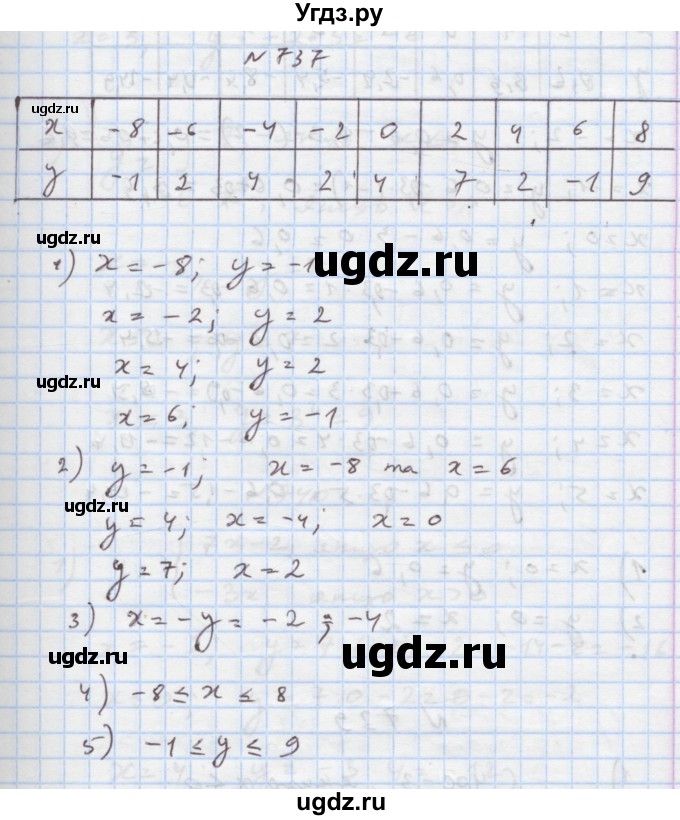 Угдз.ру
N 737
ugdz.ru
x -8 -6 -4 -2 0 2 4 6 8
y -1 2 4 2 4 7 2 -1 9
1) x = -8; y = -1
ugdz.ru
ugdz.ru
x = -2; y = 2
x = 4; y = 2
ugdz.ru
x = 6, y = -1
2) y = -1; x = -8 та x = 6
ugdz.ru
y = 4; x = -4; x = 0
y = 7; x = 2
3) x = -y = -2; -4
ugdz.ru
ugdz.ru
4) -8 ≤ x ≤ 8
5) -1 ≤ y ≤ 9
ugdz.ru